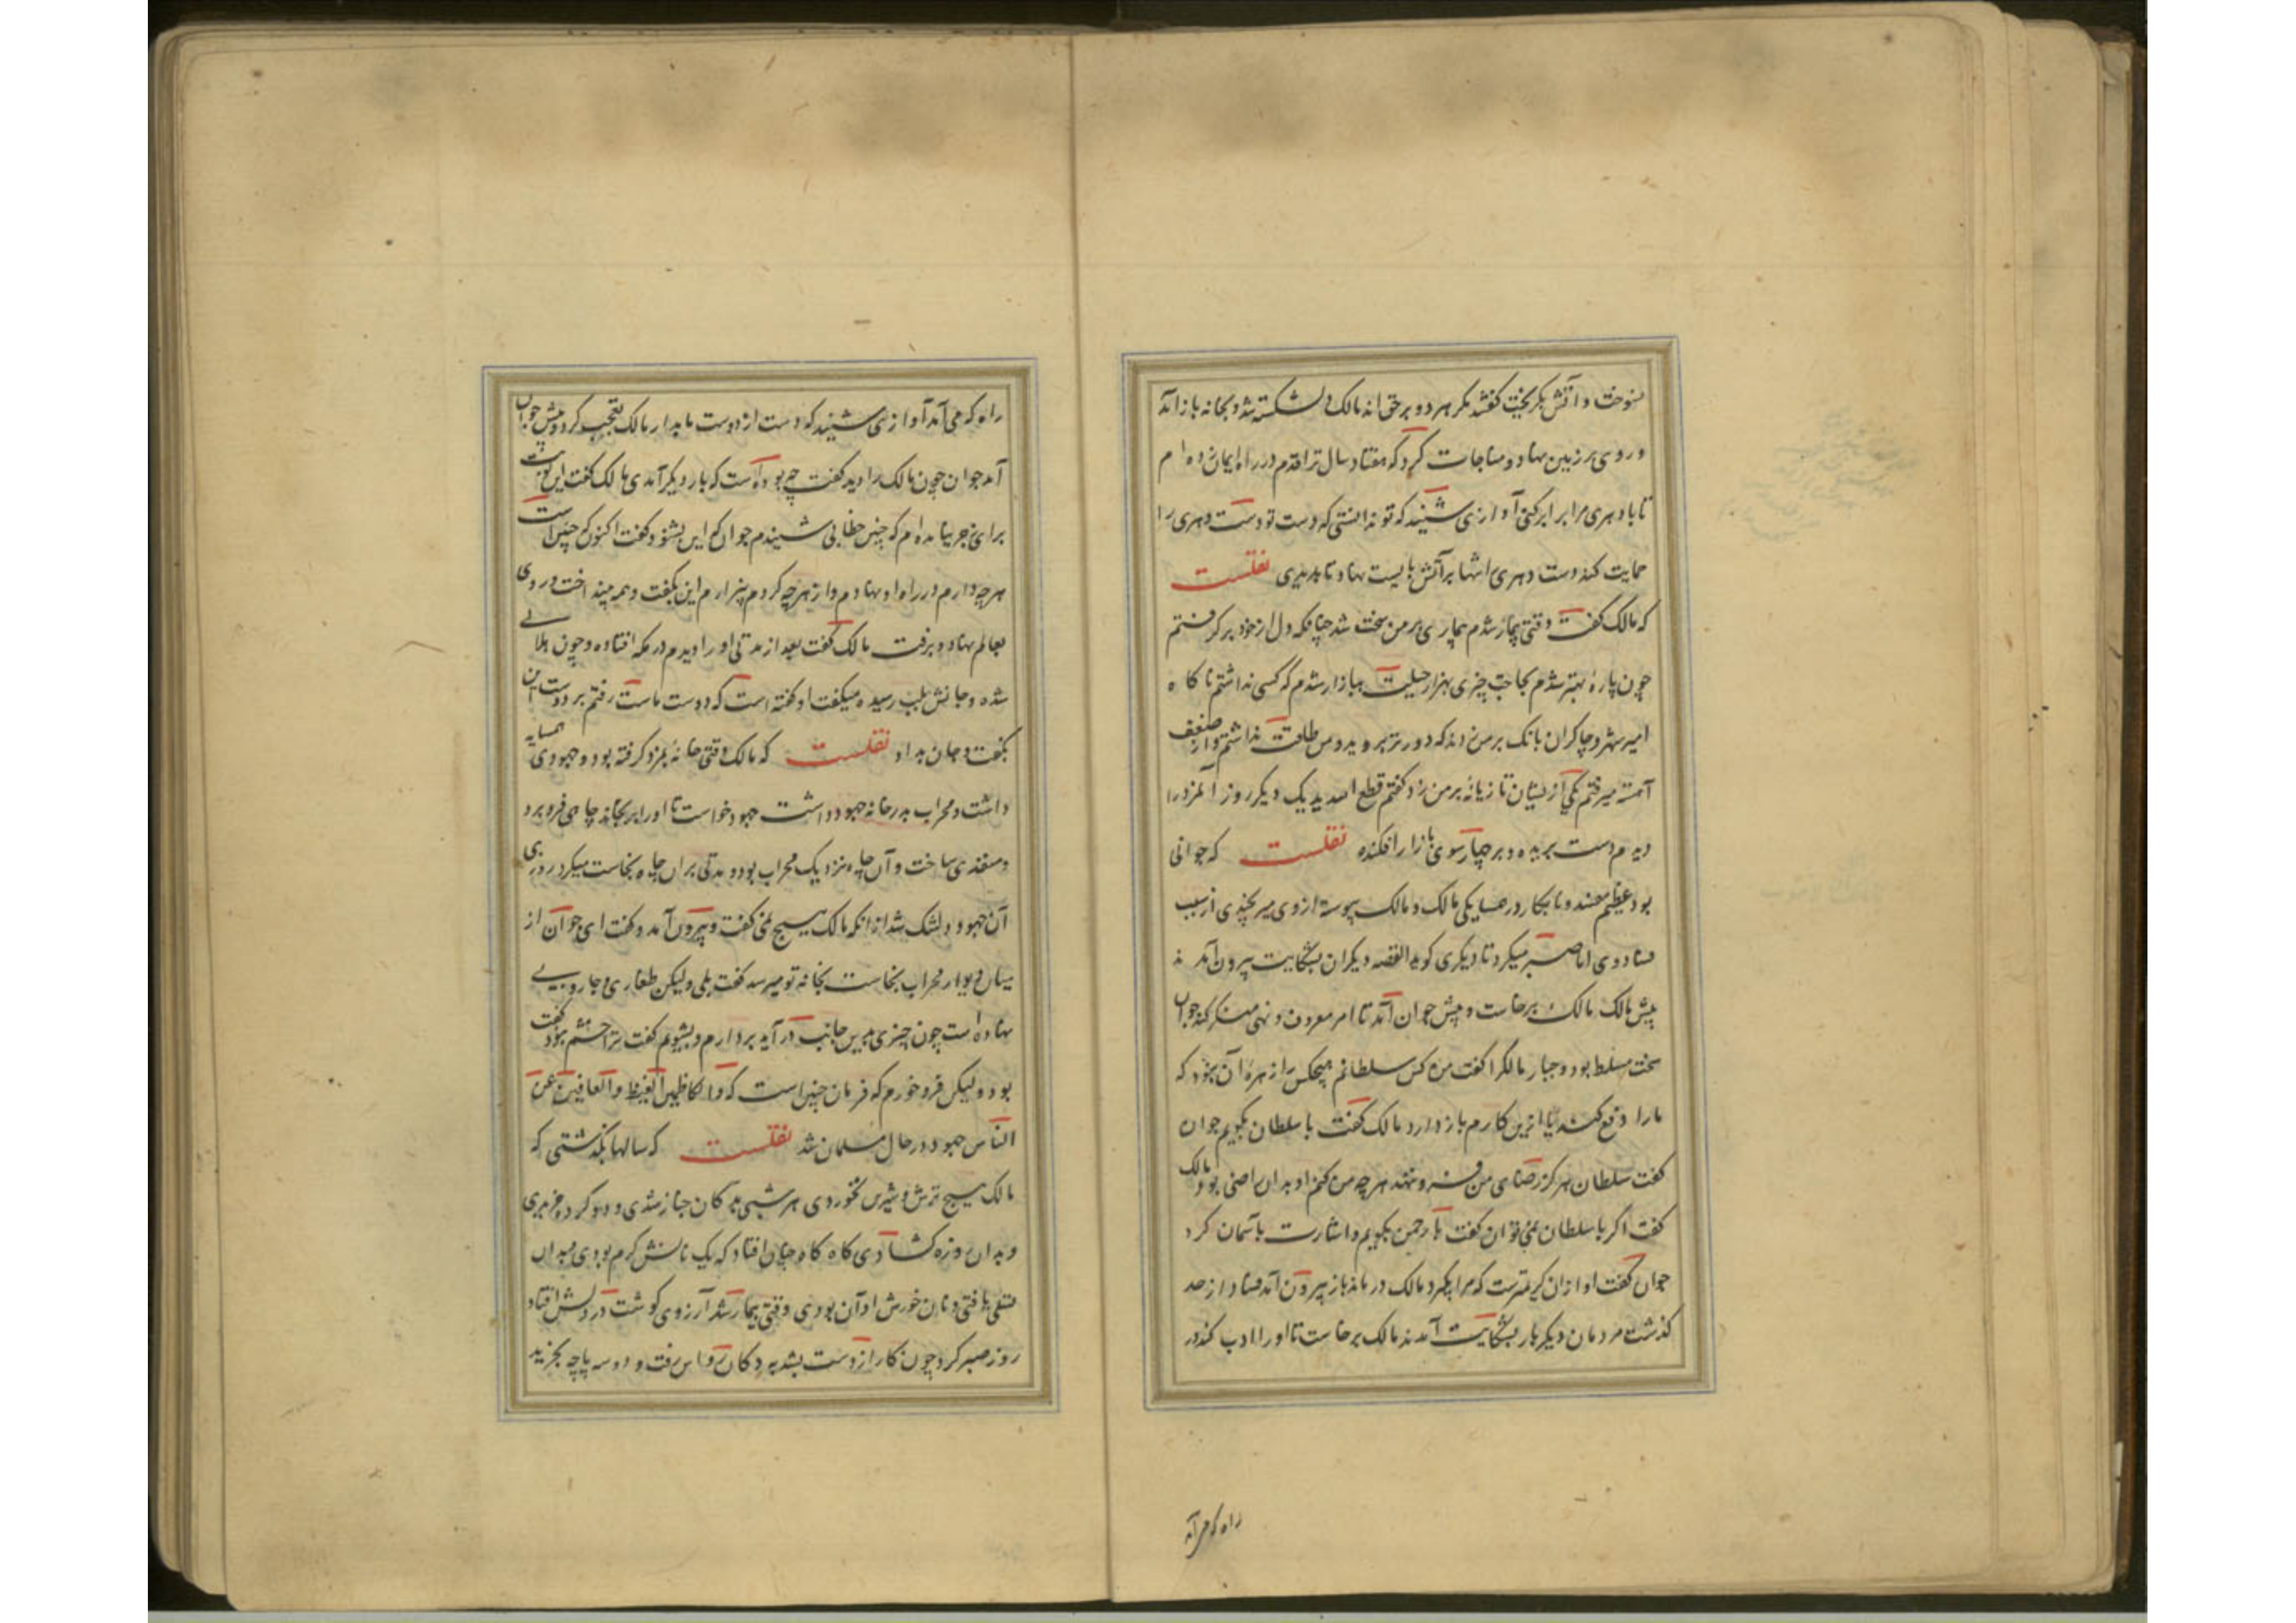 بسوخت و آتش بگریخت گفتند مگر هر دو بر حق اند مالک دلشکسته شد و بخانه باز آمد
و روی بر زمین نهاد و مناجات کرد که هفتاد سال تا قدم در راه ایمان نهاده ام
تا با دهری مرا برابر کنی آوازی شنید که تو ندانستی که دست تو دست دهری را
حمایت کند دست دهری تنها بر آتش بایست نهاد تا بدیدی نقلست
که مالک گفت وقتی بیمار شدم بیماری بر من سخت شد چنانکه دل از خود برگرفتم
چون پارهٔ بهتر شدم بحاجت چیزی بهزار حیلت ببازار شدم که کسی نداشتم ناکاه
امیر شهر و چاکران بانک بر من زدند که دورتر برو و من طاقت نداشتم و از ضعف
آهسته میرفتم یکی از ایشان تازیانهٔ بر من زد گفتم قطع الله یدیک دیگر روز آنمرد را
دیدم دست بریده و بر چهارسوی بازار افکنده نقلست که جوانی
بود عظیم مفسد و نابکار در همسایکی مالک و مالک پیوسته از وی میرنجیدی از سبب
فساد وی اما صبر میکرد تا دیگری گوید القصه دیکران بشکایت بیرون آمدند
پیش مالک مالک برخاست و پیش جوان آمد تا امر معروف و نهی منکر کند جوان
سخت مسلط بود و جبار مالکرا گفت من کس سلطانم هیچکس را زهره آن نبود که
مارا دفع کند یا ازین کارم باز دارد مالک گفت با سلطان بگویم جوان
گفت سلطان هرگز رضای من فرو ننهد هر چه من کنم او بدان راضی بود مالک
گفت اگر با سلطان نمی توان گفت با رحمن بگویم و اشارت باسمان کرد
جوان گفت او از آن کریمترست که مرا بگیرد مالک درماند باز بیرون آمد فساد از حد
گذشت مردمان دیگر بار بشکایت آمدند مالک برخاست تا او را ادب کند در
راه که می آمد
راه که می آمد آوازی شنید که دست از دوست ما بدار مالک تعجب کرد و پیش جوان
آمد جوان چون مالک را دید گفت چه بوده است که بار دیگر آمدی مالک گفت این نوبت
برای زجر نیامده ام که چنین خطابی شنیدم جوان که این بشنود گفت اکنون که چنین است
هر چه دارم در راه او نهادم و از هر چه کردم بیزارم این بگفت و همه بینداخت و روی
بعالم نهاد و برفت مالک گفت بعد از مدتی او را دیدم در مکه افتاده و چون هلالی
شده و جانش بلب رسیده میگفت او گفته است که دوست ماست رفتم بر دوست این
بگفت و جان بداد نقلست که مالک وقتی خانهٔ بمزد گرفته بود و جهودی همسایه
داشت و محراب بدر خانه جهود داشت جهود خواست تا او را برنجاند چاهی فرو برد
و منفذی ساخت و آن چاه نزدیک محراب بود و مدتی بران چاه نجاست میکرد روزی
آن جهود دلتنک شد از آنکه مالک هیچ نمی گفت و بیرون آمد و گفت ای جوان از
میان دیوار محراب نجاست بخانه تو میرسد گفت بلی ولیکن طغاری و جاروبی
نهاده است چون چیزی بدین جانب در آید بردارم و بشویم گفت ترا خشم نبود گفت
بود ولیکن فرو خورم که فرمان چنین است که والکاظمین الغیظ والعافین عن
الناس جهود در حال مسلمان شد نقلست که سالها بگذشتی که
مالک هیچ ترش و شیرین نخوردی هر شبی بدکان خباز شدی و دو گرده خریدی
و بدان روزه کشادی کاه کاه چنان افتاد که یک نانش گرم بودی بدان
تسلی یافتی و نان خورش او آن بودی وقتی بیمار شد آرزوی گوشت در دلش افتاد
روز صبر کرد چون کار از دست بشد بدکان رواس رفت و دو سه پاچه بخرید